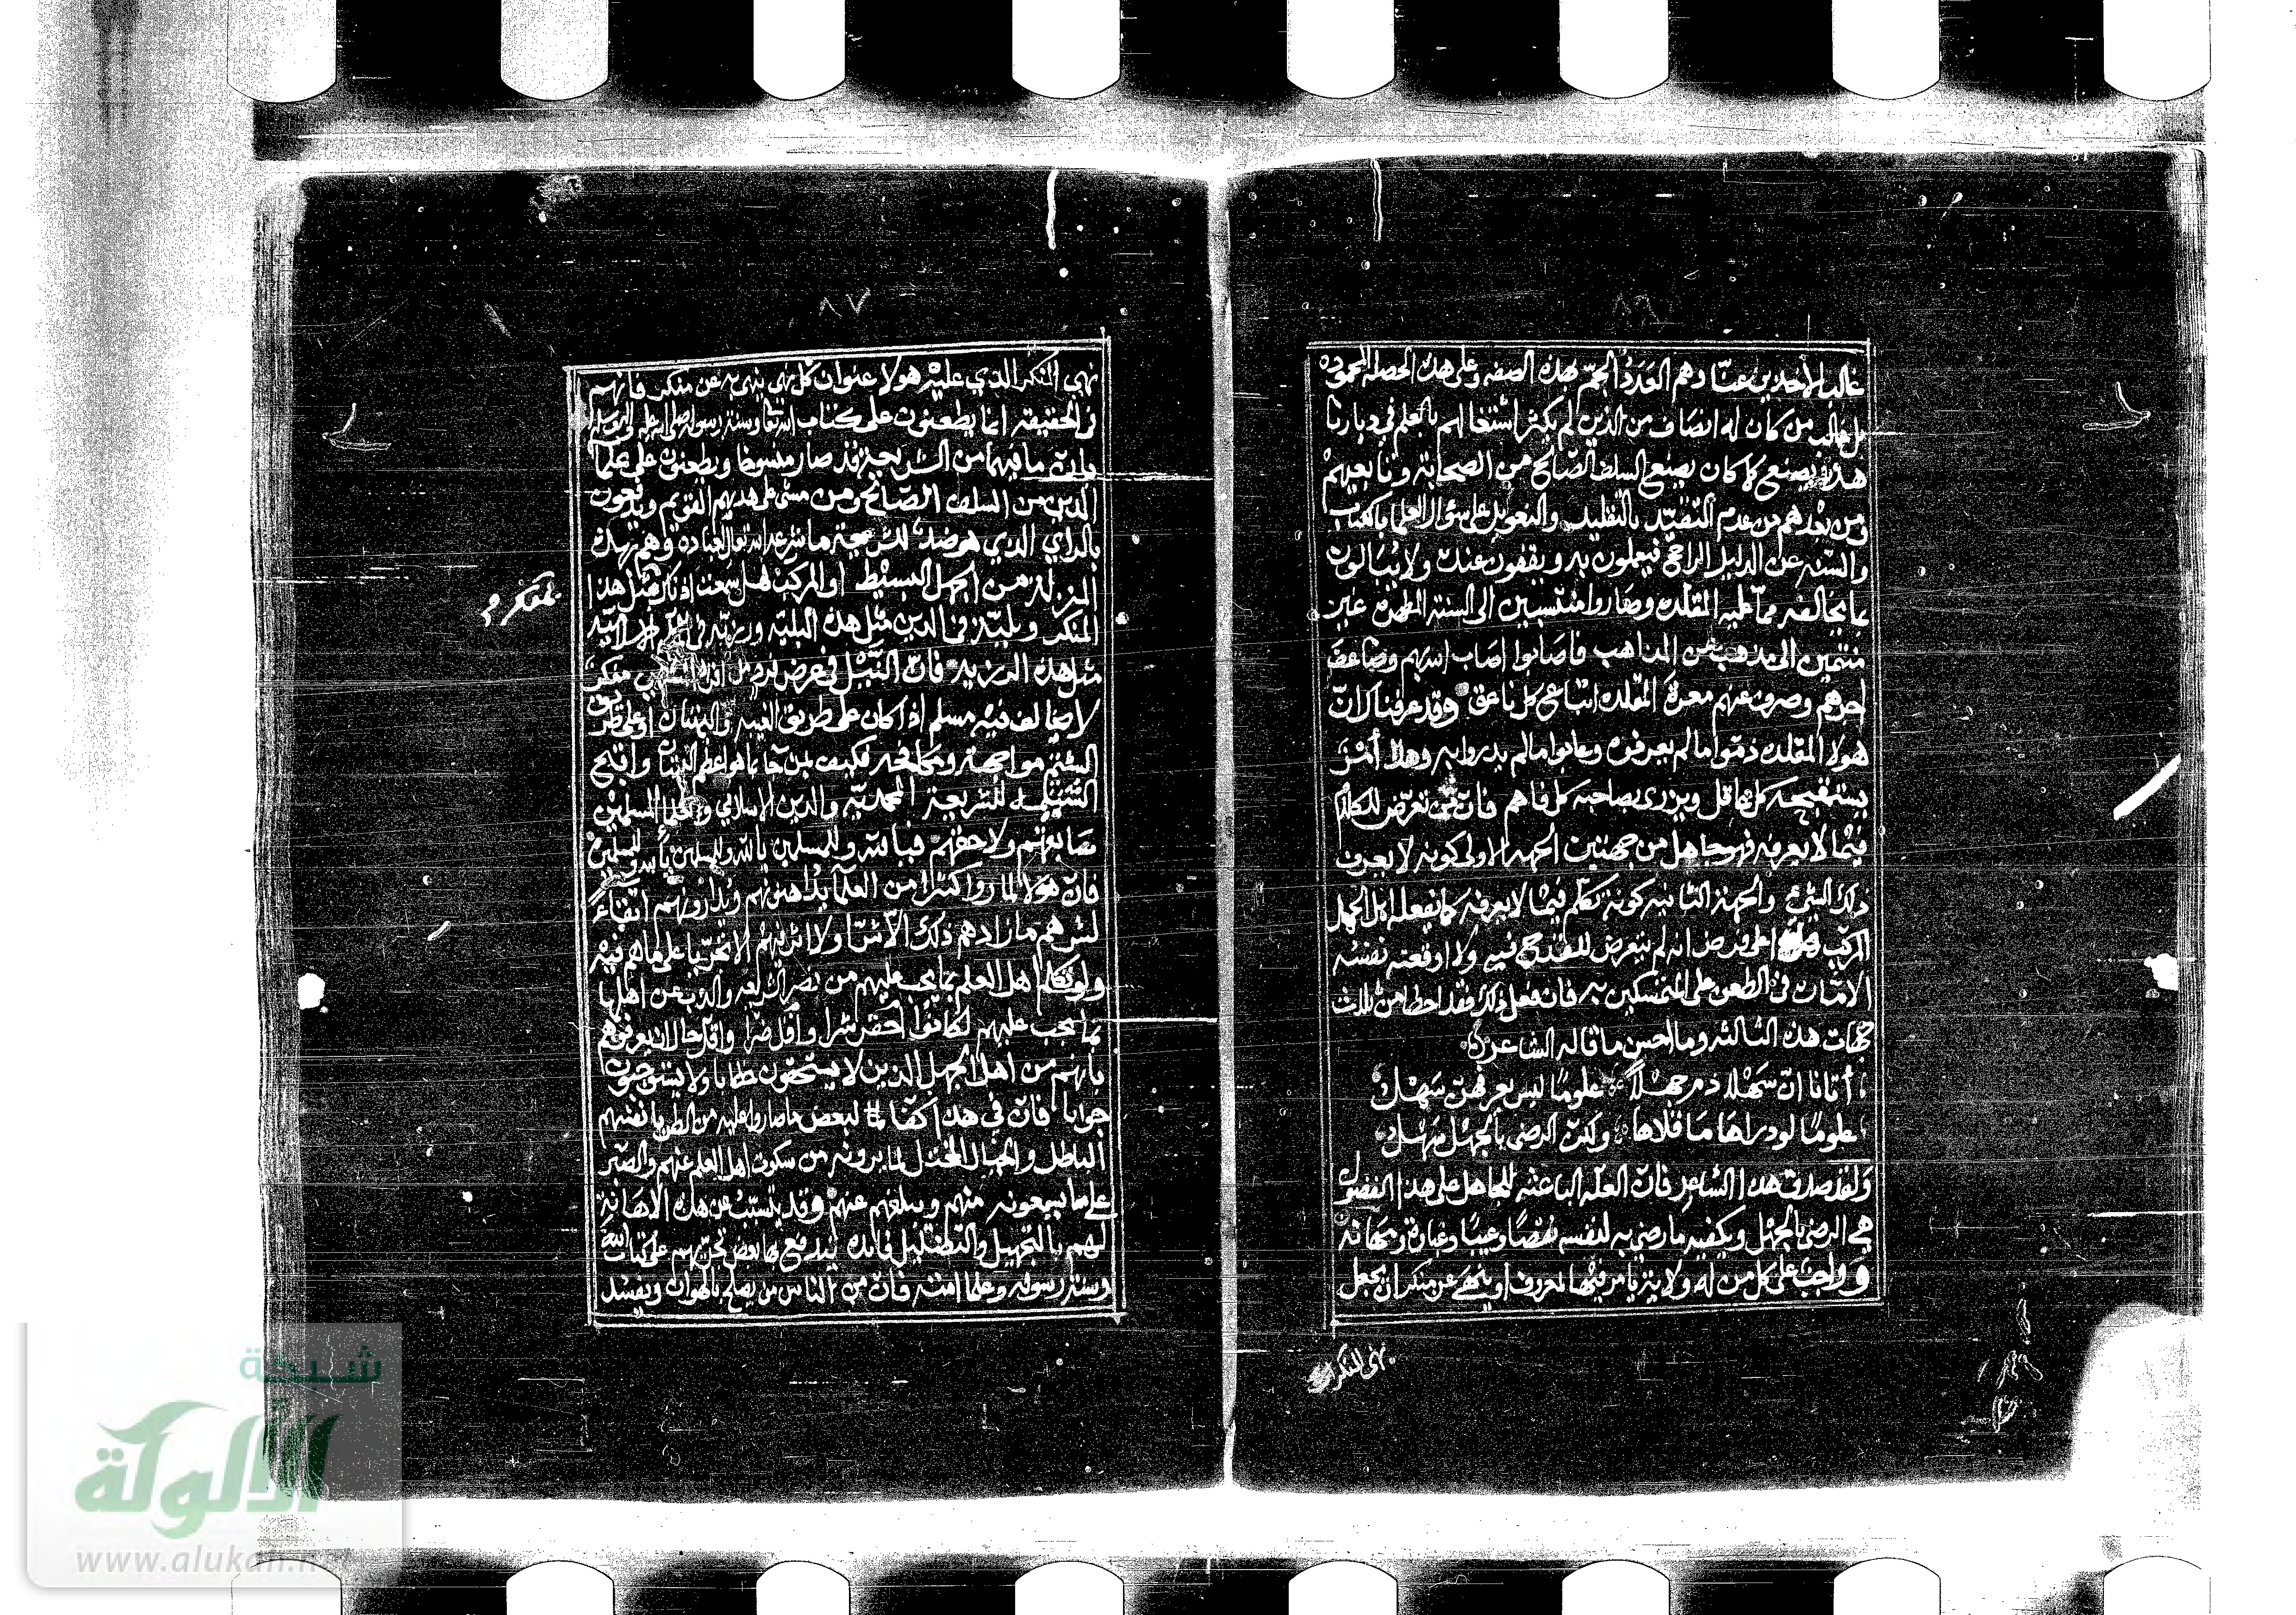 ٨٦
غالب الآخذين عنا وهم العدد الجم بهذه الصفه وعلى هذه الخصله المحموده
بل غالب من كان له انصاف من الذين لم يكثر اشتغالهم بالعلم في ديارنا
هذه يصنع كما كان يصنع السلف الصالح من الصحابة وتابعيهم
ومن بعدهم من عدم التقيّد بالتقليد والتعويل على سؤال العلما بالكتاب
والسنه عن الدليل الراجح فيعملون به ويقفون عنده ولا يبالون
بما يخالفه مما عليه المقلده وصاروا منتسبين الى السنة المطهره غير
منتمين الى مذهب من المذاهب فاصابوا اصاب الله بهم وضاعف
اجرهم وصرف عنهم معرة المقلده اتباع كل ناعق وقد عرفناك ان
هولا المقلده ذموا ما لم يعرفوه وعابوا ما لم يدروا به وهذا أمر
يستقبحه كل عاقل ويزري بصاحبه كل فاهم فان من تعرّض للكلام
فيما لا يعرفه فهو جاهل من جهتين الجهه الاولى كونه لا يعرف
ذلك الشي والجهة الثانيه كونه تكلم فيما لا يعرفه كما يفعله اهل الجهل
المركب على فرض انه لم يتعرض للقدح فيه ولا اوقعته نفسه
الامّارة في الطعن على المتمسكين به فان فعل ذلك فقد اخطا من ثلاث
جهات هذه الثالثه وما احسن ما قاله الشاعر
أتانا انّ سَهْلا ذم جهلاً علومًا ليس يعرفهن سَهْل
علومًا لو دراها ما قلاها ولكن الرضى بالجهل سهل
ولقد صدق هذا الشاعر فان العلّه الباعثه للجاهل على هذا الفضول
هي الرضى بالجهل ويكفيه ما رضي به لنفسه نقصًا وعيبًا وغباوة ومهانة
وواجب على كل من له ولاية يامر فيها بمعروف او ينهى عن منكر ان يجعل
نهي المنكر
٨٧
نهي المنكر الذي عليه هولا عنوان كل نهي ينهى به عن منكر فانهم
في الحقيقه انما يطعنون على كتاب الله تعالى وسنة رسوله صلى الله عليه وآله وسلم
وان ما فيهما من الشريعة قد صار منسوخا ويطعنون على علما
الدين من السلف الصّالح ومن مشى على هديهم القويم ويدفعون
بالراي الذي هو ضد للشريعة ما شرعه الله تعالى لعباده وهم بهذه
المنزله من الجهل البسيط او المركب فهل سمعت اذناك بمثل هذا
بمنكر
المنكر وبليّة في الدين مثل هذه البليّه ورزيّه في
مثل هذه الرزيه فان النيل في عرض فرد من افراد منكر
لا يخالف فيه مسلم اذا كان على طريق الغيبه او البهتان او على طريق
الشتم مواجهة ومكافحه فكيف بمن جا بما هو اعظم البهت واقبح
الشتم للشريعة المحمديّه والدين الاسلامي وعلما المسلمين
سابقهم ولاحقهم فيا لله وللمسلمين يا لله وللمسلمين يا لله وللمسلمين
فان هولا لما روا كثيرا من العلما يداهنونهم ويدارونهم اتقاءً
لشرهم ما زادهم ذلك الا شرّا ولا اثر فيهم الا تجرّيا على ما هم فيه
ولو تكلم اهل العلم بما يجب عليهم من نصر الشريعه والذب عن اهلها
بما يجب عليهم لكانوا احقر شرا واقل ضرا واقل حال ان يعرفوهم
بانهم من اهل الجهل الذين لا يستحقون خطابا ولا يستوجبون
جوابا فان في هذا كفّا لهم لبعض ما صاروا عليه من الظن بانفسهم
الباطل والخيال المختل لما يرونه من سكوت اهل العلم عنهم والصبر
على ما يسمعونه منهم ويبلغهم عنهم وقد يتسبب عن هذه الاهانة
لهم بالتجهيل والتضليل فايده يندفع بها بعض تجرّيهم على كتاب الله
وسنة رسوله وعلما امته فان من الناس من يصلح بالهوان ويفسد
شبكة
الألوكة